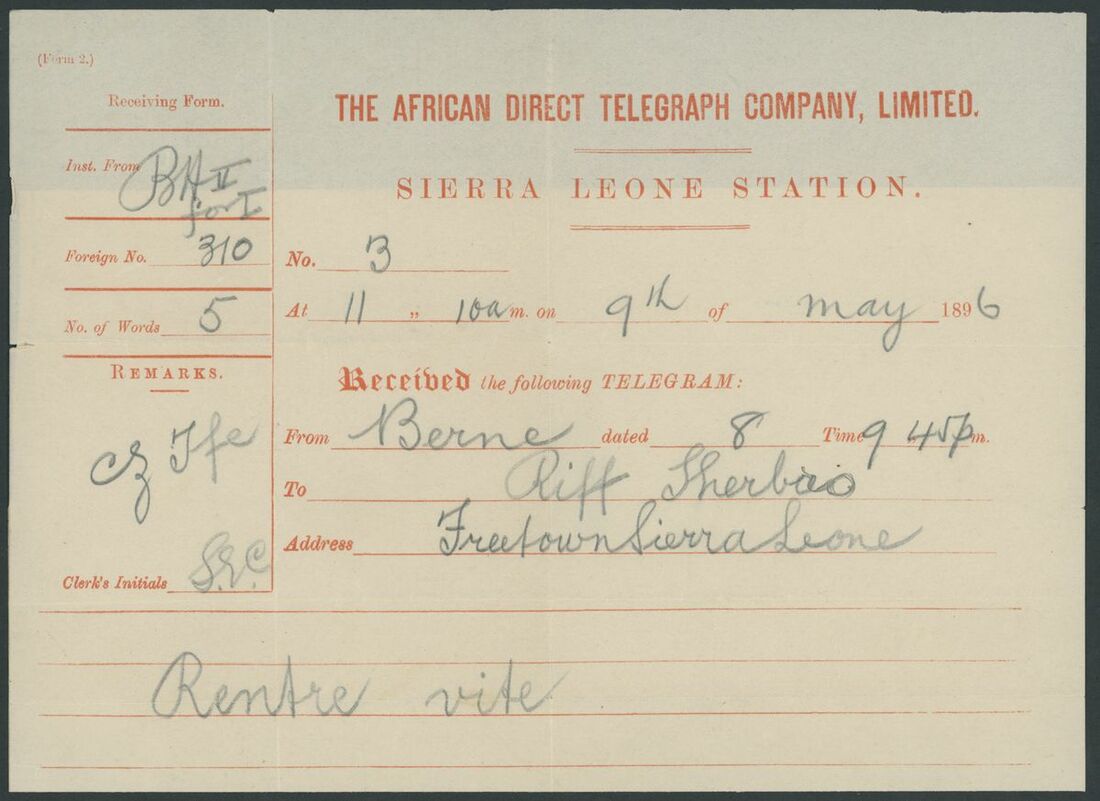 (Form 2.)
Receiving Form.
THE AFRICAN DIRECT TELEGRAPH COMPANY, LIMITED.
SIERRA LEONE STATION.
Inst. From BH II
for I
Foreign No. 310
No. 3
No. of Words 5
At 11 „ 10a m. on 9th of may 1896
REMARKS.
Received the following TELEGRAM:
From Berne dated 8 Time 9 45p m.
To Riff Sherbro
Address Freetown Sierra Leone
Clerk's Initials
Rentre vite